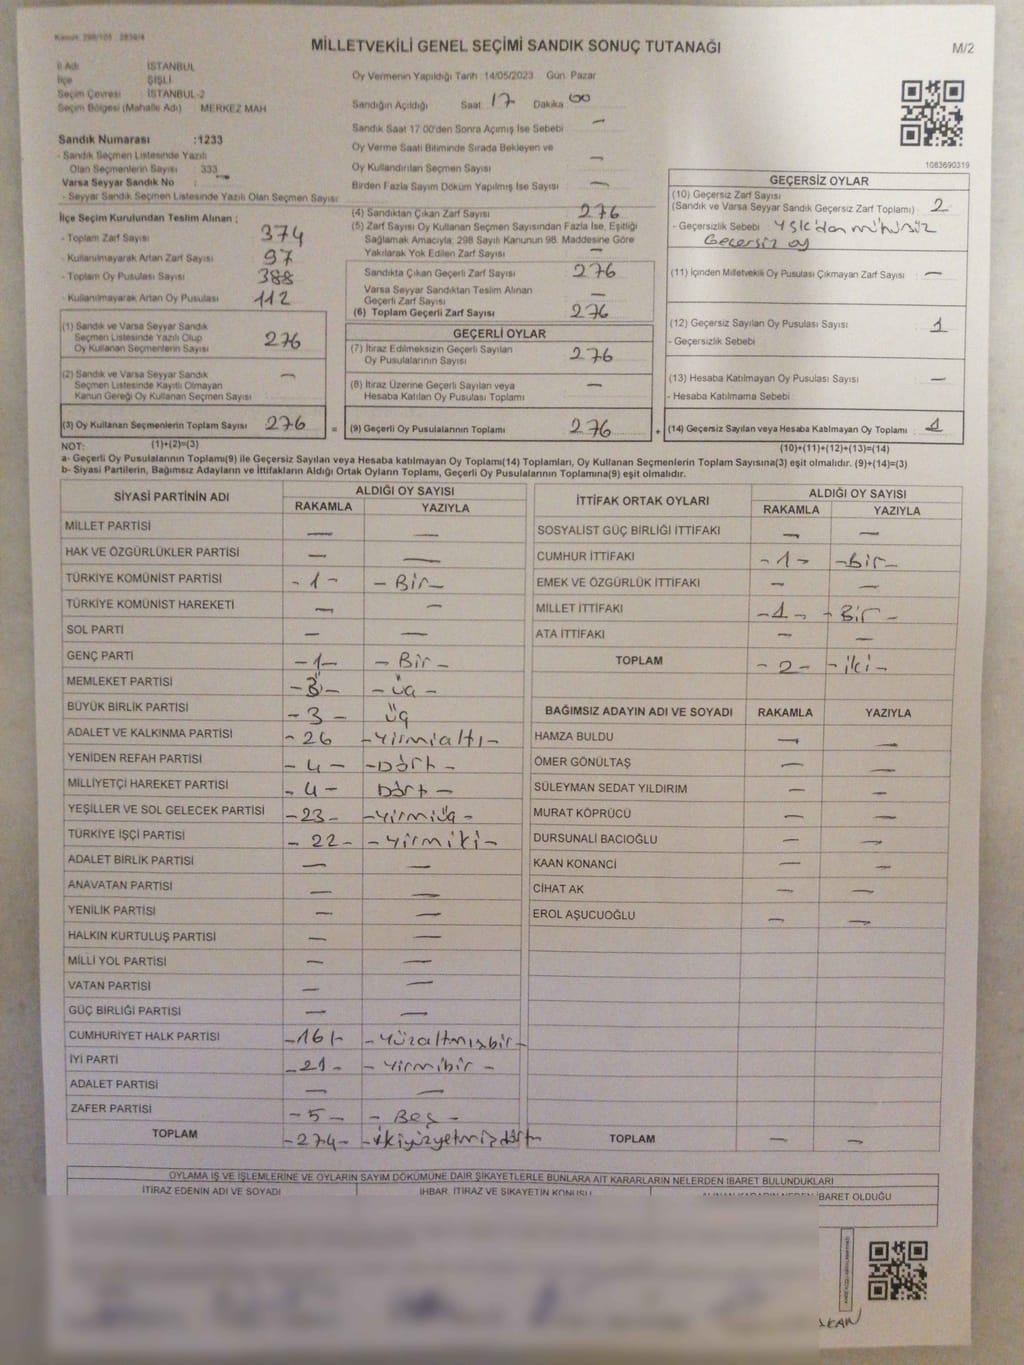 MİLLETVEKİLİ GENEL SEÇİMİ SANDIK SONUÇ TUTANAĞI
M/2
İl Adı İSTANBUL
İlçe ŞİŞLİ
Seçim Çevresi İSTANBUL-2
Seçim Bölgesi (Mahalle Adı) MERKEZ MAH
Oy Vermenin Yapıldığı Tarih 14/05/2023 Gün Pazar
Sandığın Açıldığı Saat 17 Dakika 00
Sandık Saat 17 00'den Sonra Açımış İse Sebebi —
Oy Verme Saati Bitiminde Sırada Bekleyen ve
Oy Kullandırılan Seçmen Sayısı —
Birden Fazla Sayım Döküm Yapılmış İse Sayısı —
Sandık Numarası :1233
- Sandık Seçmen Listesinde Yazılı
Olan Seçmenlerin Sayısı 333
Varsa Seyyar Sandık No : —
- Seyyar Sandık Seçmen Listesinde Yazılı Olan Seçmen Sayısı
İlçe Seçim Kurulundan Teslim Alınan ;
- Toplam Zarf Sayısı 374
- Kullanılmayarak Artan Zarf Sayısı 97
- Toplam Oy Pusulası Sayısı 388
- Kullanılmayarak Artan Oy Pusulası 112
(1) Sandık ve Varsa Seyyar Sandık
Seçmen Listesinde Yazılı Olup
Oy Kullanan Seçmenlerin Sayısı 276
(2) Sandık ve Varsa Seyyar Sandık
Seçmen Listesinde Kayıtlı Olmayan
Kanun Gereği Oy Kullanan Seçmen Sayısı —
(3) Oy Kullanan Seçmenlerin Toplam Sayısı 276
(4) Sandıktan Çıkan Zarf Sayısı 276
(5) Zarf Sayısı Oy Kullanan Seçmen Sayısından Fazla İse, Eşitliği
Sağlamak Amacıyla, 298 Sayılı Kanunun 98. Maddesine Göre
Yakılarak Yok Edilen Zarf Sayısı —
Sandıkta Çıkan Geçerli Zarf Sayısı 276
Varsa Seyyar Sandıktan Teslim Alınan
Geçerli Zarf Sayısı —
(6) Toplam Geçerli Zarf Sayısı 276
GEÇERLİ OYLAR
(7) İtiraz Edilmeksizin Geçerli Sayılan
Oy Pusulalarının Sayısı 276
(8) İtiraz Üzerine Geçerli Sayılan veya
Hesaba Katılan Oy Pusulası Toplamı —
= (9) Geçerli Oy Pusulalarının Toplamı 276
1083690319
GEÇERSİZ OYLAR
(10) Geçersiz Zarf Sayısı
(Sandık ve Varsa Seyyar Sandık Geçersiz Zarf Toplamı) 2
- Geçersizlik Sebebi YSK'dan mühürsüz
Geçersiz oy
(11) İçinden Milletvekili Oy Pusulası Çıkmayan Zarf Sayısı —
(12) Geçersiz Sayılan Oy Pusulası Sayısı 1
- Geçersizlik Sebebi
(13) Hesaba Katılmayan Oy Pusulası Sayısı —
- Hesaba Katılmama Sebebi
+ (14) Geçersiz Sayılan veya Hesaba Katılmayan Oy Toplamı 1
NOT: (1)+(2)=(3)
(10)+(11)+(12)+(13)=(14)
a- Geçerli Oy Pusulalarının Toplamı(9) ile Geçersiz Sayılan veya Hesaba katılmayan Oy Toplamı(14) Toplamları, Oy Kullanan Seçmenlerin Toplam Sayısına(3) eşit olmalıdır. (9)+(14)=(3)
b- Siyasi Partilerin, Bağımsız Adayların ve İttifakların Aldığı Ortak Oyların Toplamı, Geçerli Oy Pusulalarının Toplamına(9) eşit olmalıdır.
SİYASİ PARTİNİN ADI ALDIĞI OY SAYISI
RAKAMLA YAZIYLA
MİLLET PARTİSİ — —
HAK VE ÖZGÜRLÜKLER PARTİSİ — —
TÜRKİYE KOMÜNİST PARTİSİ -1- - Bir -
TÜRKİYE KOMÜNİST HAREKETİ — —
SOL PARTİ — —
GENÇ PARTİ -1- - Bir -
MEMLEKET PARTİSİ -3- - üç -
BÜYÜK BİRLİK PARTİSİ -3- üç
ADALET VE KALKINMA PARTİSİ -26 -Yirmialtı-
YENİDEN REFAH PARTİSİ -4- -Dört-
MİLLİYETÇİ HAREKET PARTİSİ -4- Dört -
YEŞİLLER VE SOL GELECEK PARTİSİ -23- -Yirmiüç-
TÜRKİYE İŞÇİ PARTİSİ -22- -Yirmiiki-
ADALET BİRLİK PARTİSİ — —
ANAVATAN PARTİSİ — —
YENİLİK PARTİSİ — —
HALKIN KURTULUŞ PARTİSİ — —
MİLLİ YOL PARTİSİ — —
VATAN PARTİSİ — —
GÜÇ BİRLİĞİ PARTİSİ — —
CUMHURİYET HALK PARTİSİ -161- -Yüzaltmışbir-
İYİ PARTİ -21- - Yirmibir -
ADALET PARTİSİ — —
ZAFER PARTİSİ -5- - Beş -
TOPLAM -274- -İkiyüzyetmişdört-
İTTİFAK ORTAK OYLARI ALDIĞI OY SAYISI
RAKAMLA YAZIYLA
SOSYALİST GÜÇ BİRLİĞİ İTTİFAKI — —
CUMHUR İTTİFAKI -1- -Bir-
EMEK VE ÖZGÜRLÜK İTTİFAKI — —
MİLLET İTTİFAKI -1- - Bir -
ATA İTTİFAKI — —
TOPLAM -2- -iki-
BAĞIMSIZ ADAYIN ADI VE SOYADI RAKAMLA YAZIYLA
HAMZA BULDU — —
ÖMER GÖNÜLTAŞ — —
SÜLEYMAN SEDAT YILDIRIM — —
MURAT KÖPRÜCÜ — —
DURSUNALİ BACIOĞLU — —
KAAN KONANCİ — —
CİHAT AK — —
EROL AŞUCUOĞLU — —
TOPLAM — —
OYLAMA İŞ VE İŞLEMLERİNE VE OYLARIN SAYIM DÖKÜMÜNE DAİR ŞİKAYETLERLE BUNLARA AİT KARARLARIN NELERDEN İBARET BULUNDUKLARI
İTİRAZ EDENİN ADI VE SOYADI İHBAR, İTİRAZ VE ŞİKAYETİN KONUSU İBARET OLDUĞU